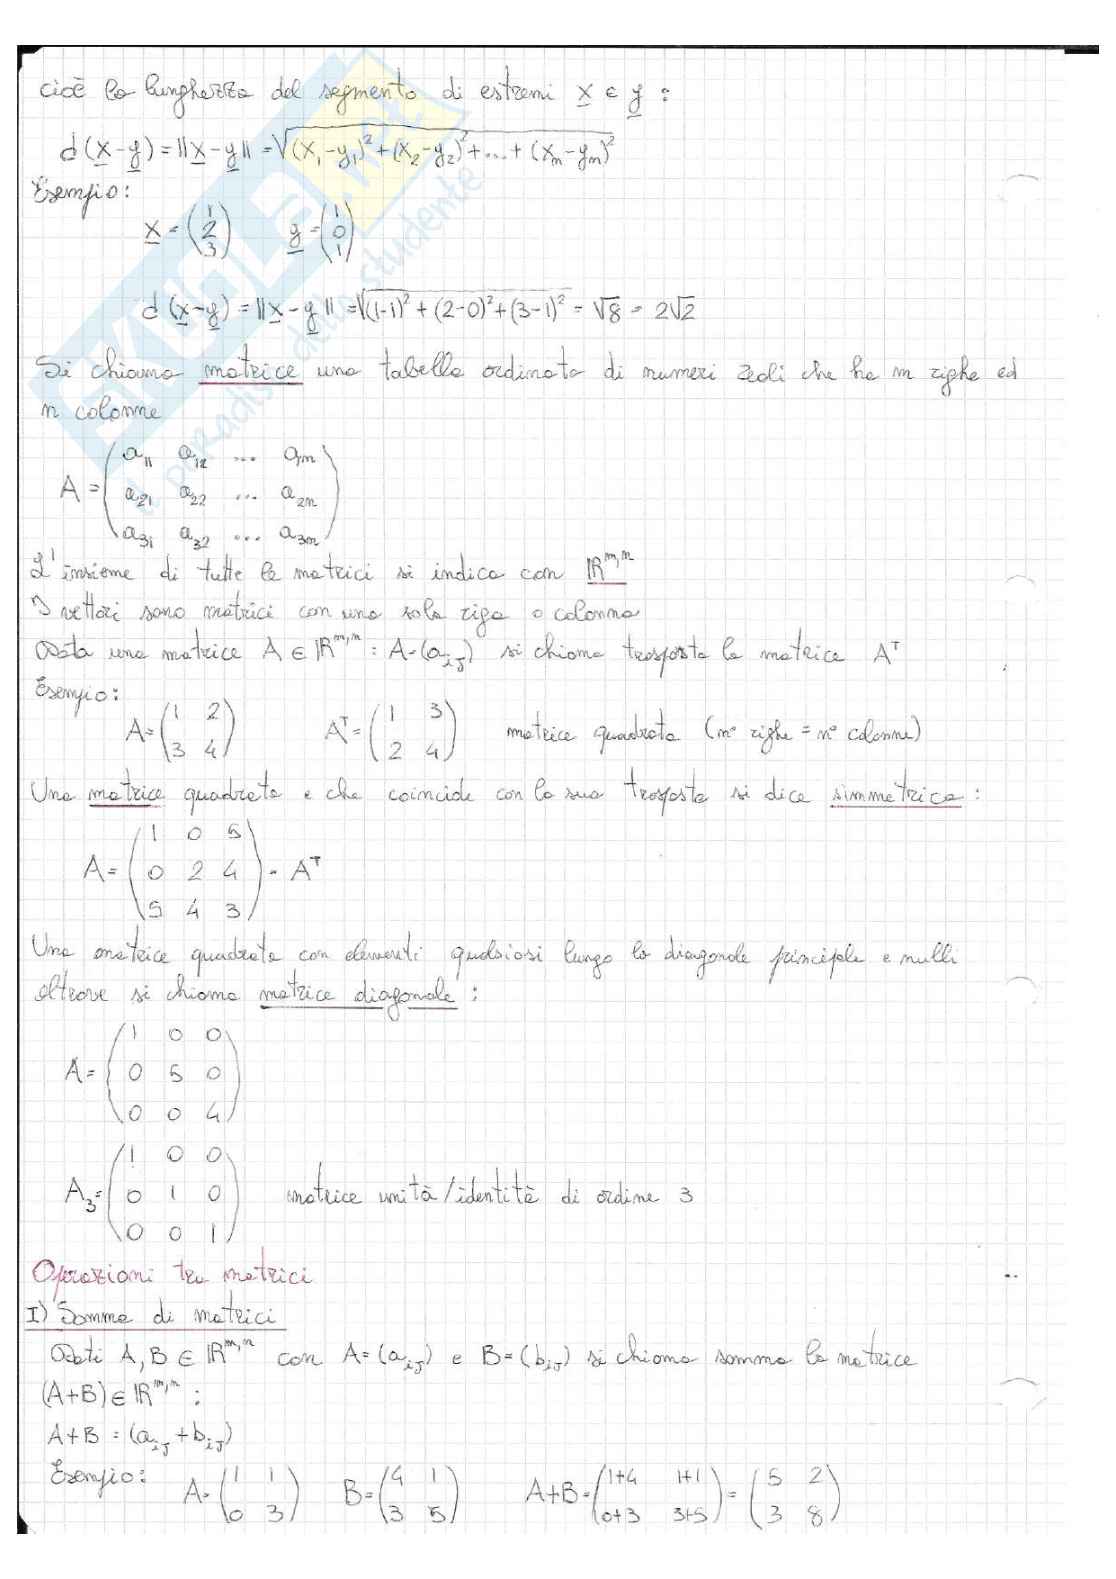 cioè la lunghezza del segmento di estremi x e y :
d(x-y) = ||x-y|| = √(x₁-y₁)²+(x₂-y₂)²+...+(xₙ-yₙ)²
Esempio:
x = (1 2 3) y = (1 0 1)
d(x-y) = ||x-y|| = √(1-1)²+(2-0)²+(3-1)² = √8 = 2√2
Si chiama matrice una tabella ordinata di numeri reali che ha m righe ed
n colonne
a₁₁ a₁₂ ... a₁ₙ
A = a₂₁ a₂₂ ... a₂ₙ
a₃₁ a₃₂ ... a₃ₙ
L'insieme di tutte le matrici si indica con ℝᵐ,ⁿ
I vettori sono matrici con una sola riga o colonna
Data una matrice A ∈ ℝᵐ,ⁿ : A=(aᵢⱼ) si chiama trasposta la matrice Aᵀ
Esempio:
A = (1 2 / 3 4) Aᵀ = (1 3 / 2 4) matrice quadrata (n° righe = n° colonne)
Una matrice quadrata e che coincide con la sua trasposta si dice simmetrica :
1 0 5
A = 0 2 4 = Aᵀ
5 4 3
Una matrice quadrata con elementi qualsiasi lungo la diagonale principale e nulli
altrove si chiama matrice diagonale :
1 0 0
A = 0 5 0
0 0 4
1 0 0
A₃ = 0 1 0 matrice unità/identità di ordine 3
0 0 1
Operazioni tra matrici
I) Somma di matrici
Dati A, B ∈ ℝᵐ,ⁿ con A=(aᵢⱼ) e B=(bᵢⱼ) si chiama somma la matrice
(A+B) ∈ ℝᵐ,ⁿ :
A+B = (aᵢⱼ+bᵢⱼ)
Esempio: A = (1 1 / 0 3) B = (4 1 / 3 5) A+B = (1+4 1+1 / 0+3 3+5) = (5 2 / 3 8)
SKUOLA.net
il paradiso dello studente